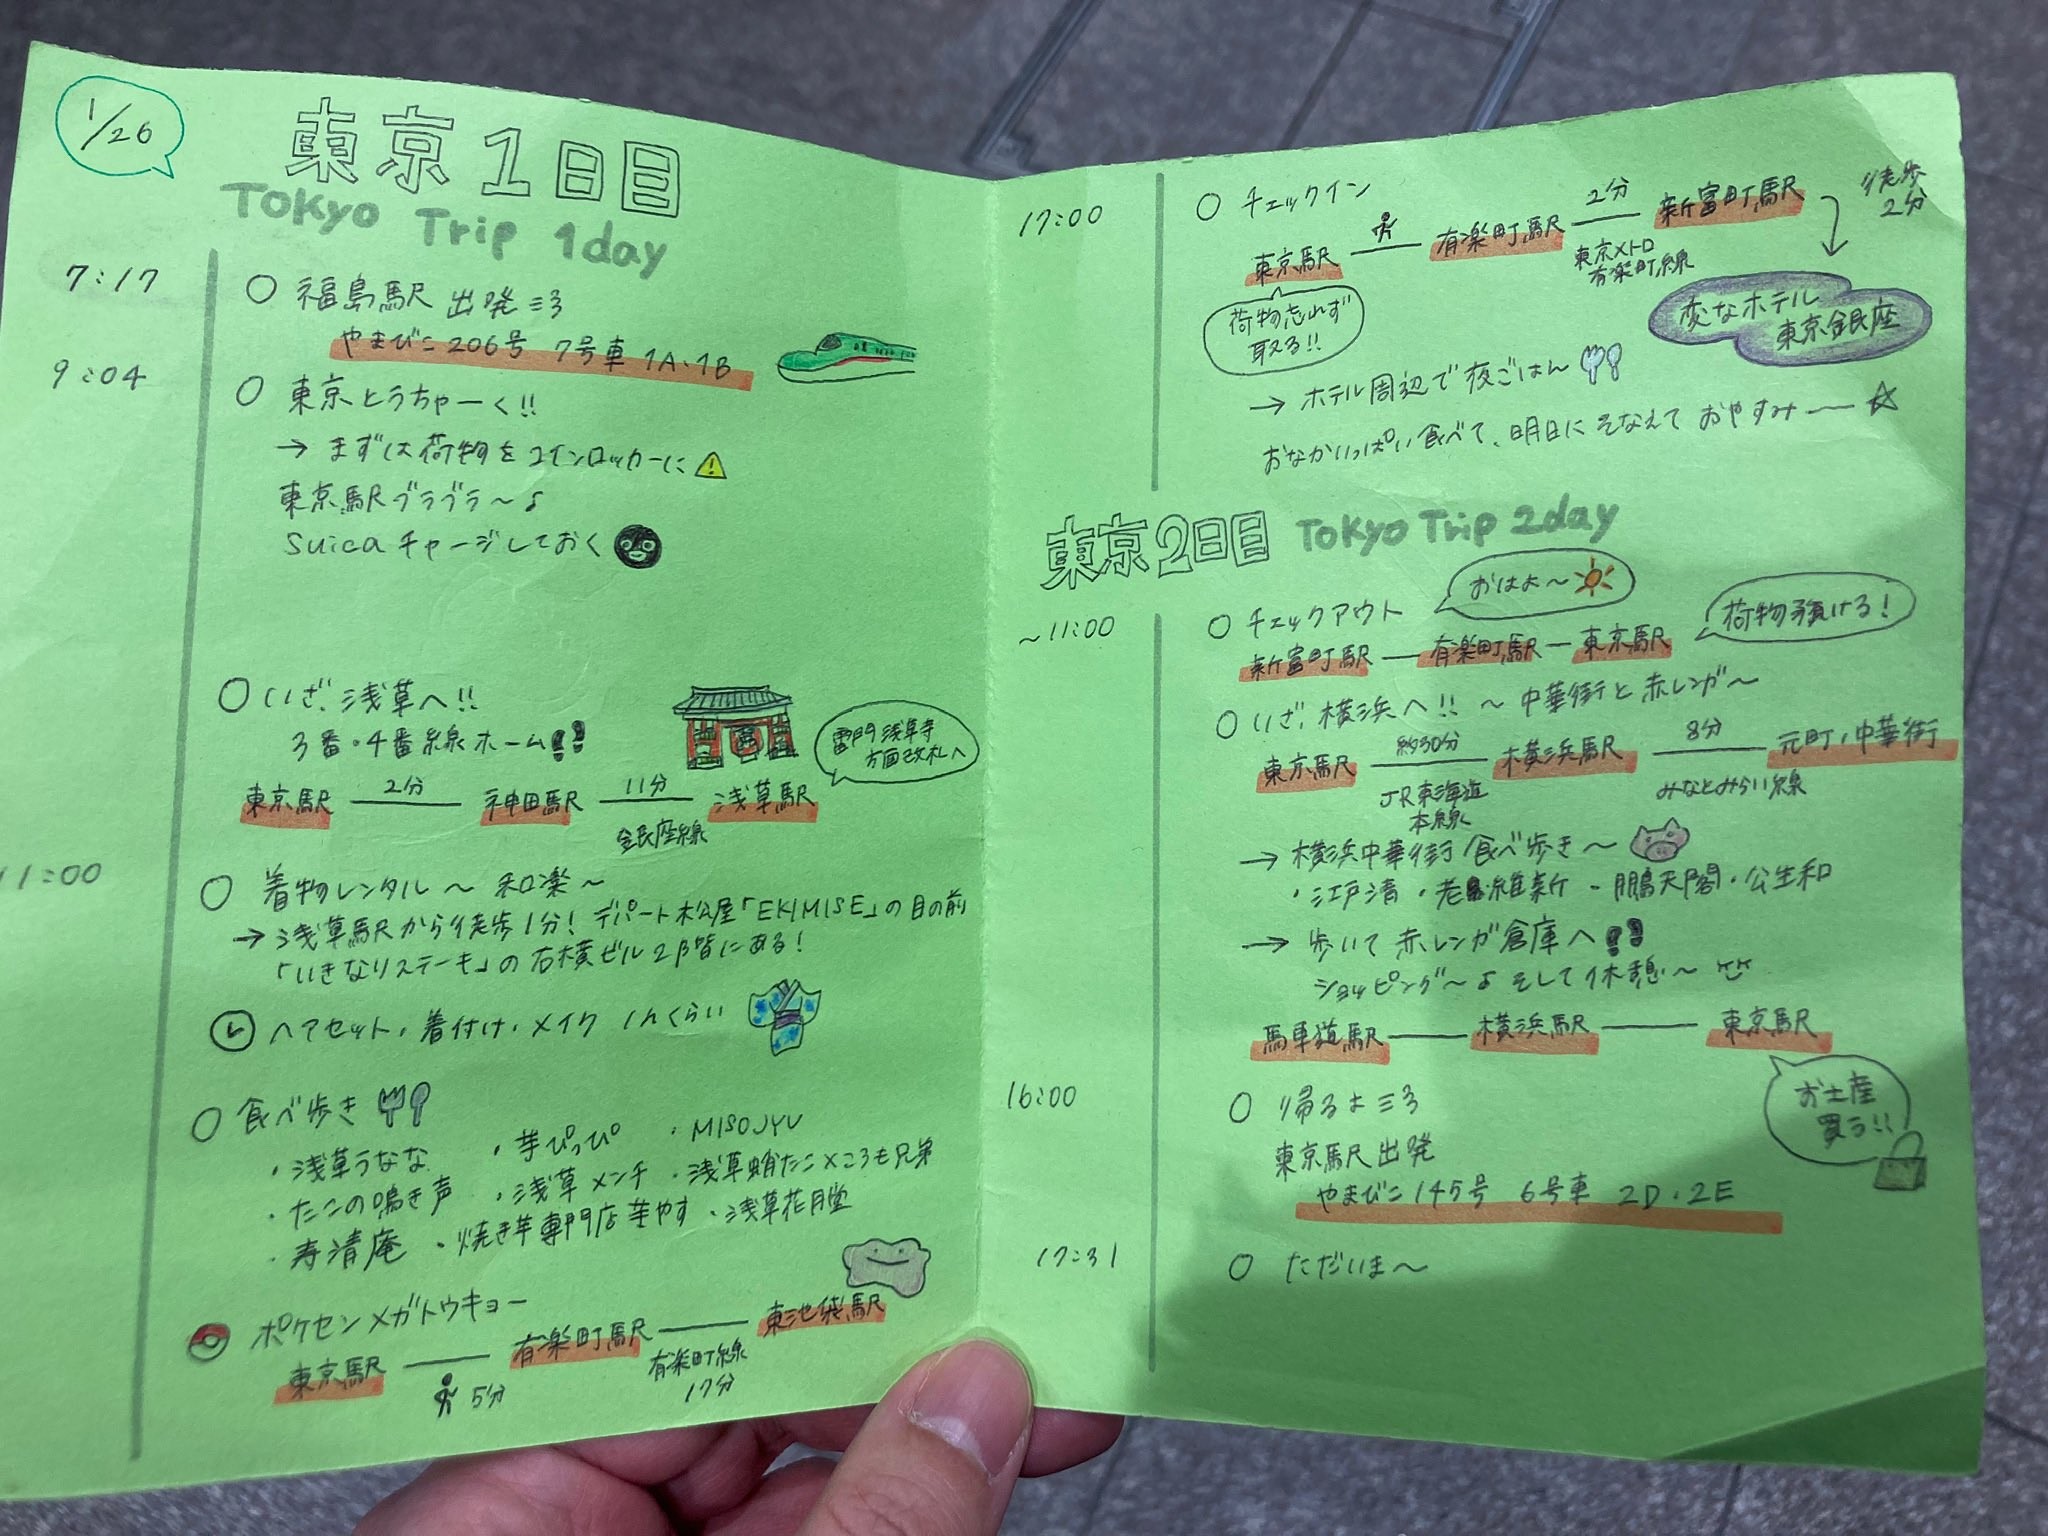 1/26
東京1日目
Tokyo Trip 1day
7:17
福島駅 出発
やまびこ206号 7号車 1A・1B
9:04
東京とうちゃーく!!
→ まずは荷物をコインロッカーに
東京駅ブラブラ〜♪
Suicaチャージしておく
いざ、浅草へ!!
3番・4番線ホーム
雷門浅草寺
方面改札へ
東京駅 2分 神田駅 11分 浅草駅
銀座線
11:00
着物レンタル〜 和楽〜
→ 浅草駅から徒歩1分! デパート松屋「EKIMISE」の目の前
「いきなりステーキ」の石横ビル2階にある!
ヘアセット・着付け・メイク 1hくらい
食べ歩き
・浅草うなな ・芋ぴっぴ ・MISOJYU
・たこの鳴き声 ・浅草メンチ ・浅草蛸たこ×ころも兄弟
・寿清庵 ・焼き芋専門店芋やす ・浅草花月堂
ポケセンメガトウキョー
東京駅 有楽町駅 東池袋駅
5分 有楽町線
17分
17:00
チェックイン
東京駅 有楽町駅 2分 新富町駅
徒歩
2分
東京メトロ
有楽町線
荷物忘れず
取る!!
変なホテル
東京銀座
→ ホテル周辺で夜ごはん
おなかいっぱい食べて、明日にそなえておやすみー☆
東京2日目 Tokyo Trip 2day
〜11:00
チェックアウト
おはよ〜
新富町駅 — 有楽町駅 — 東京駅
荷物預ける!
いざ、横浜へ!! 〜中華街と赤レンガ〜
東京駅 約30分 横浜駅 8分 元町・中華街
JR東海道
本線
みなとみらい線
→ 横浜中華街食べ歩き〜
・江戸清 ・老維新 ・鵬天閣 ・公生和
→ 歩いて赤レンガ倉庫へ
ショッピング〜♪ そして休憩〜
馬車道駅 — 横浜駅 — 東京駅
お土産
買う!!
16:00
帰るよ
東京駅出発
やまびこ145号 6号車 2D・2E
17:31
ただいま〜